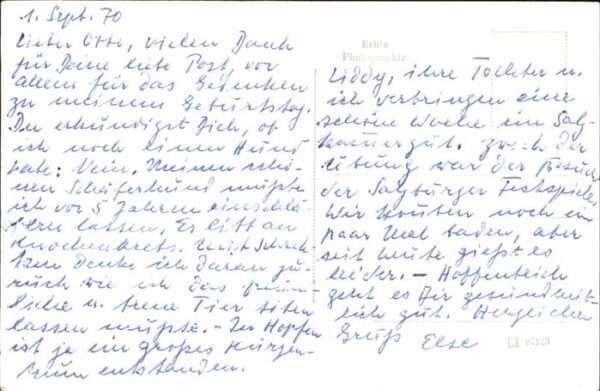 1. Sept. 70
Lieber Otto, vielen Dank
für Deine liebe Post, vor
allem für das Gedenken
zu meinem Geburtstag.
Du erkundigst Dich, ob
ich noch einen Hund
habe: Nein. Meinen schö-
nen Schäferhund mußte
ich vor 5 Jahren einschlä-
fern lassen. Er litt an
Knochenkrebs. Mit Schrek-
ken denke ich daran zu-
rück wie ich das
liebe u. treue Tier töten
lassen mußte. - In Hopfen
ist ja ein großes Kurzen-
trum entstanden.
Echte
Photographie
Liddy, ihre Tochter u.
ich verbringen eine
schöne Woche im Salz-
kammergut. Zweck der
Übung war der Besuch
der Salzburger Festspiele.
Wir konnten noch ein
paar Mal baden, aber
seit heute gießt es
leider. - Hoffentlich
geht es Dir gesundheit-
lich gut. Herzlichen
Gruß Else